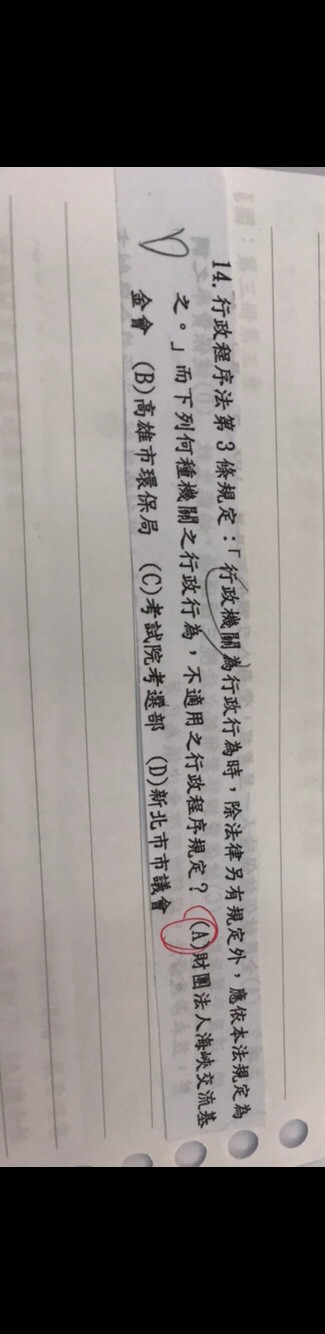 14. 行政程序法第3條規定：「行政機關為行政行為時，除法律另有規定外，應依本法規定為
之。」而下列何種機關之行政行為，不適用之行政程序規定？ (A)財團法人海峽交流基
金會 (B)高雄市環保局 (C)考試院考選部 (D)新北市市議會
D